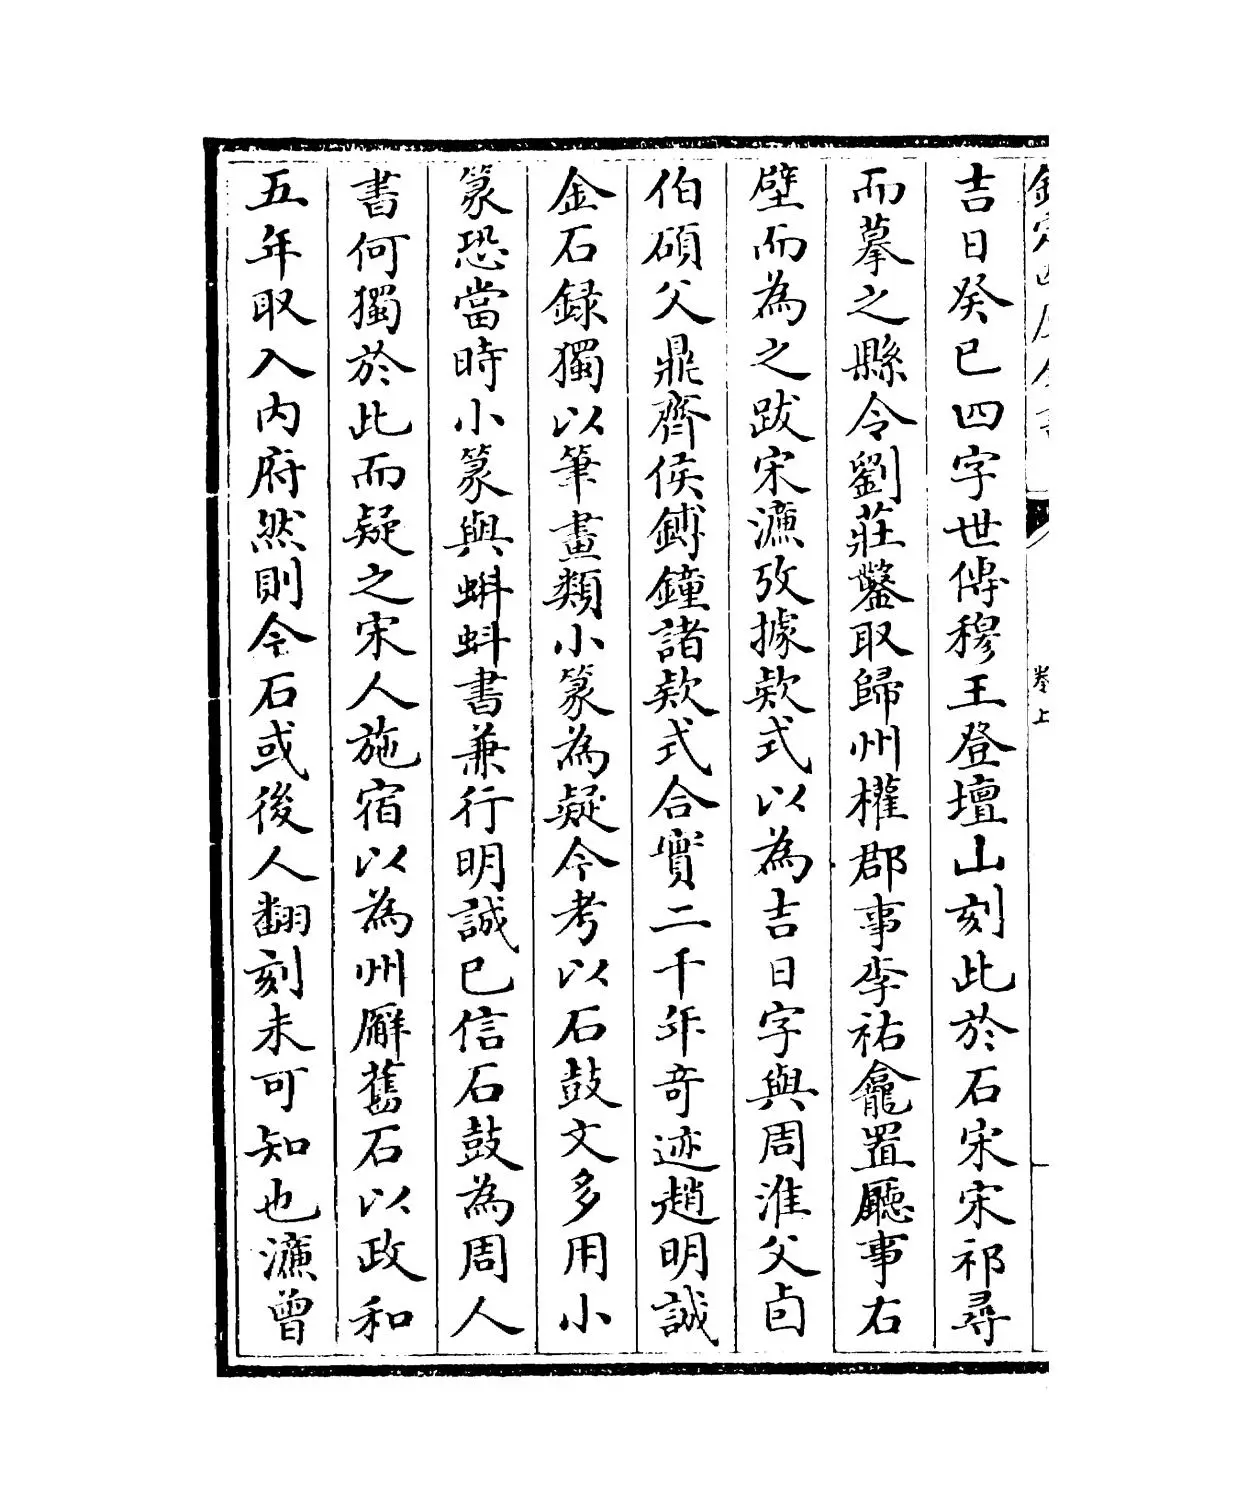 欽定四庫全書
卷上
吉日癸巳四字世傳穆王登壇山刻此於石宋宋祁尋
而摹之縣令劉莊鑿取歸州權郡事李祐龕置廳事右
壁而為之跋宋濂攷據欵式以為吉日字與周淮父卣
伯碩父鼎齊侯鎛鐘諸欵式合實二千年奇迹趙明誠
金石録獨以筆畫類小篆為疑今考以石鼓文多用小
篆恐當時小篆與蝌蚪書兼行明誠巳信石鼓為周人
書何獨於此而疑之宋人施宿以為州廨舊石以政和
五年取入内府然則今石或後人翻刻未可知也濂曽